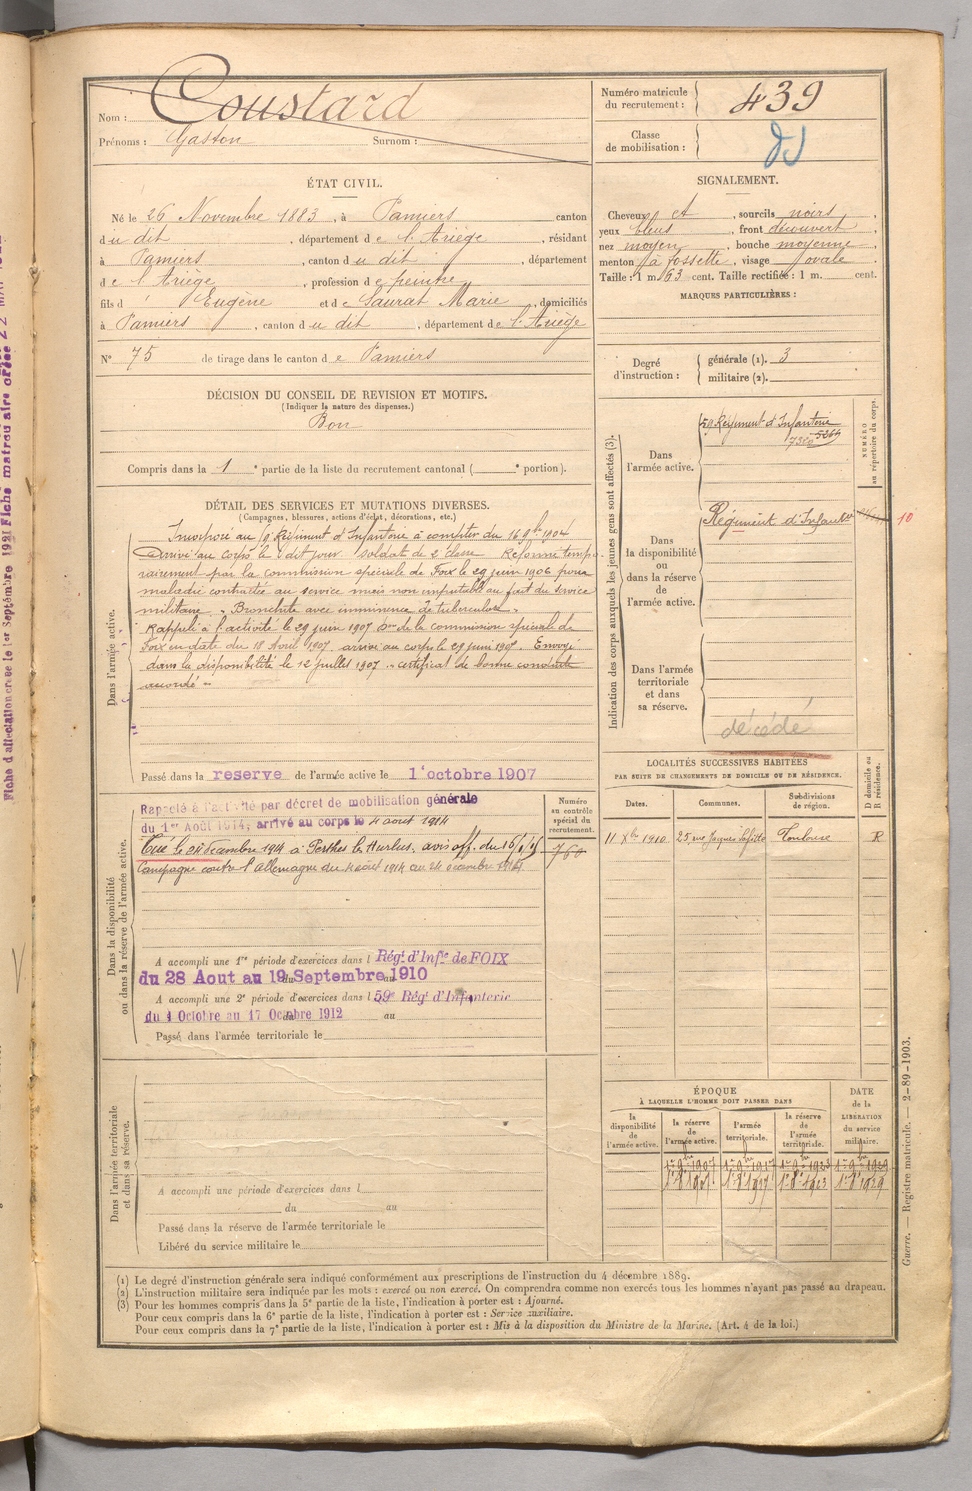 Nom : Coustard
Prénoms : Gaston Surnom :
Numéro matricule du recrutement : 439
Classe de mobilisation :
ÉTAT CIVIL.
Né le 26 Novembre 1883, à Pamiers canton
du dit, département de l'Ariège, résidant
à Pamiers, canton du dit, département
de l'Ariège, profession de peintre
fils d' Eugène et de Saurat Marie, domiciliés
à Pamiers, canton du dit, département de l'Ariège
N° 75 de tirage dans le canton de Pamiers
SIGNALEMENT.
Cheveux et, sourcils noirs,
yeux bleus, front découvert,
nez moyen, bouche moyenne,
menton à fossette, visage ovale.
Taille : 1 m. 63 cent. Taille rectifiée : 1 m. cent.
MARQUES PARTICULIÈRES :
Degré d'instruction :
générale (1). 3
militaire (2).
DÉCISION DU CONSEIL DE REVISION ET MOTIFS.
(Indiquer la nature des dispenses.)
Bon
Compris dans la 1e partie de la liste du recrutement cantonal ( e portion).
DÉTAIL DES SERVICES ET MUTATIONS DIVERSES.
(Campagnes, blessures, actions d'éclat, décorations, etc.)
Dans l'armée active.
Incorporé au 9e Régiment d'Infanterie à compter du 16 9bre 1904
Arrivé au corps le dit jour soldat de 2e classe Réformé tempo-
rairement par la commission spéciale de Foix le 29 juin 1906 pour
maladie contractée au service mais non imputable au fait du service
militaire "Bronchite avec imminence de tuberculose".
Rappelé à l'activité le 29 juin 1907 Don de la commission spéciale de
Foix en date du 18 Avril 1907. arrivé au corps le 29 juin 1907. Envoyé
dans la disponibilité le 12 juillet 1907 "certificat de bonne conduite
accordé"
Passé dans la reserve de l'armée active le 1er octobre 1907
Dans la disponibilité ou dans la réserve de l'armée active.
Rappelé à l'activité par décret de mobilisation générale
du 1er Août 1914, arrivé au corps le 4 août 1914
Tué le 24 décembre 1914 à Perthes les Hurlus, avis off. du
Campagne contre l'Allemagne du 4 août 1914 au 24 décembre 1914
Numéro au contrôle spécial du recrutement.
760
A accompli une 1re période d'exercices dans l Régt d'Infie de FOIX
du 28 Aout au 19 Septembre 1910
A accompli une 2e période d'exercices dans l 59e Régt d'Infanterie
du 1 Octobre au 17 Octobre 1912 au
Passé dans l'armée territoriale le
Dans l'armée territoriale et dans sa réserve.
A accompli une période d'exercices dans l
du au
Passé dans la réserve de l'armée territoriale le
Libéré du service militaire le
Indication des corps auxquels les jeunes gens sont affectés (3).
NUMÉRO au répertoire du corps.
Dans l'armée active.
Régiment d'Infanterie
7320 5264
Dans la disponibilité ou dans la réserve de l'armée active.
Régiment d'Infanterie
10
Dans l'armée territoriale et dans sa réserve.
décédé
LOCALITÉS SUCCESSIVES HABITÉES
PAR SUITE DE CHANGEMENTS DE DOMICILE OU DE RÉSIDENCE.
D domicile ou R résidence.
Dates. Communes. Subdivisions de région.
11 Xbre 1910 25 rue Jacques Lafitte Toulouse R
ÉPOQUE
À LAQUELLE L'HOMME DOIT PASSER DANS
DATE de la LIBÉRATION du service militaire.
la disponibilité de l'armée active.
la réserve de l'armée active.
l'armée territoriale.
la réserve de l'armée territoriale.
(1) Le degré d'instruction générale sera indiqué conformément aux prescriptions de l'instruction du 4 décembre 1889.
(2) L'instruction militaire sera indiquée par les mots : exercé ou non exercé. On comprendra comme non exercés tous les hommes n'ayant pas passé au drapeau.
(3) Pour les hommes compris dans la 5e partie de la liste, l'indication à porter est : Ajourné.
Pour ceux compris dans la 6e partie de la liste, l'indication à porter est : Service auxiliaire.
Pour ceux compris dans la 7e partie de la liste, l'indication à porter est : Mis à la disposition du Ministre de la Marine. (Art. 4 de la loi.)
Guerre. — Registre matricule. — 2-89-1903.